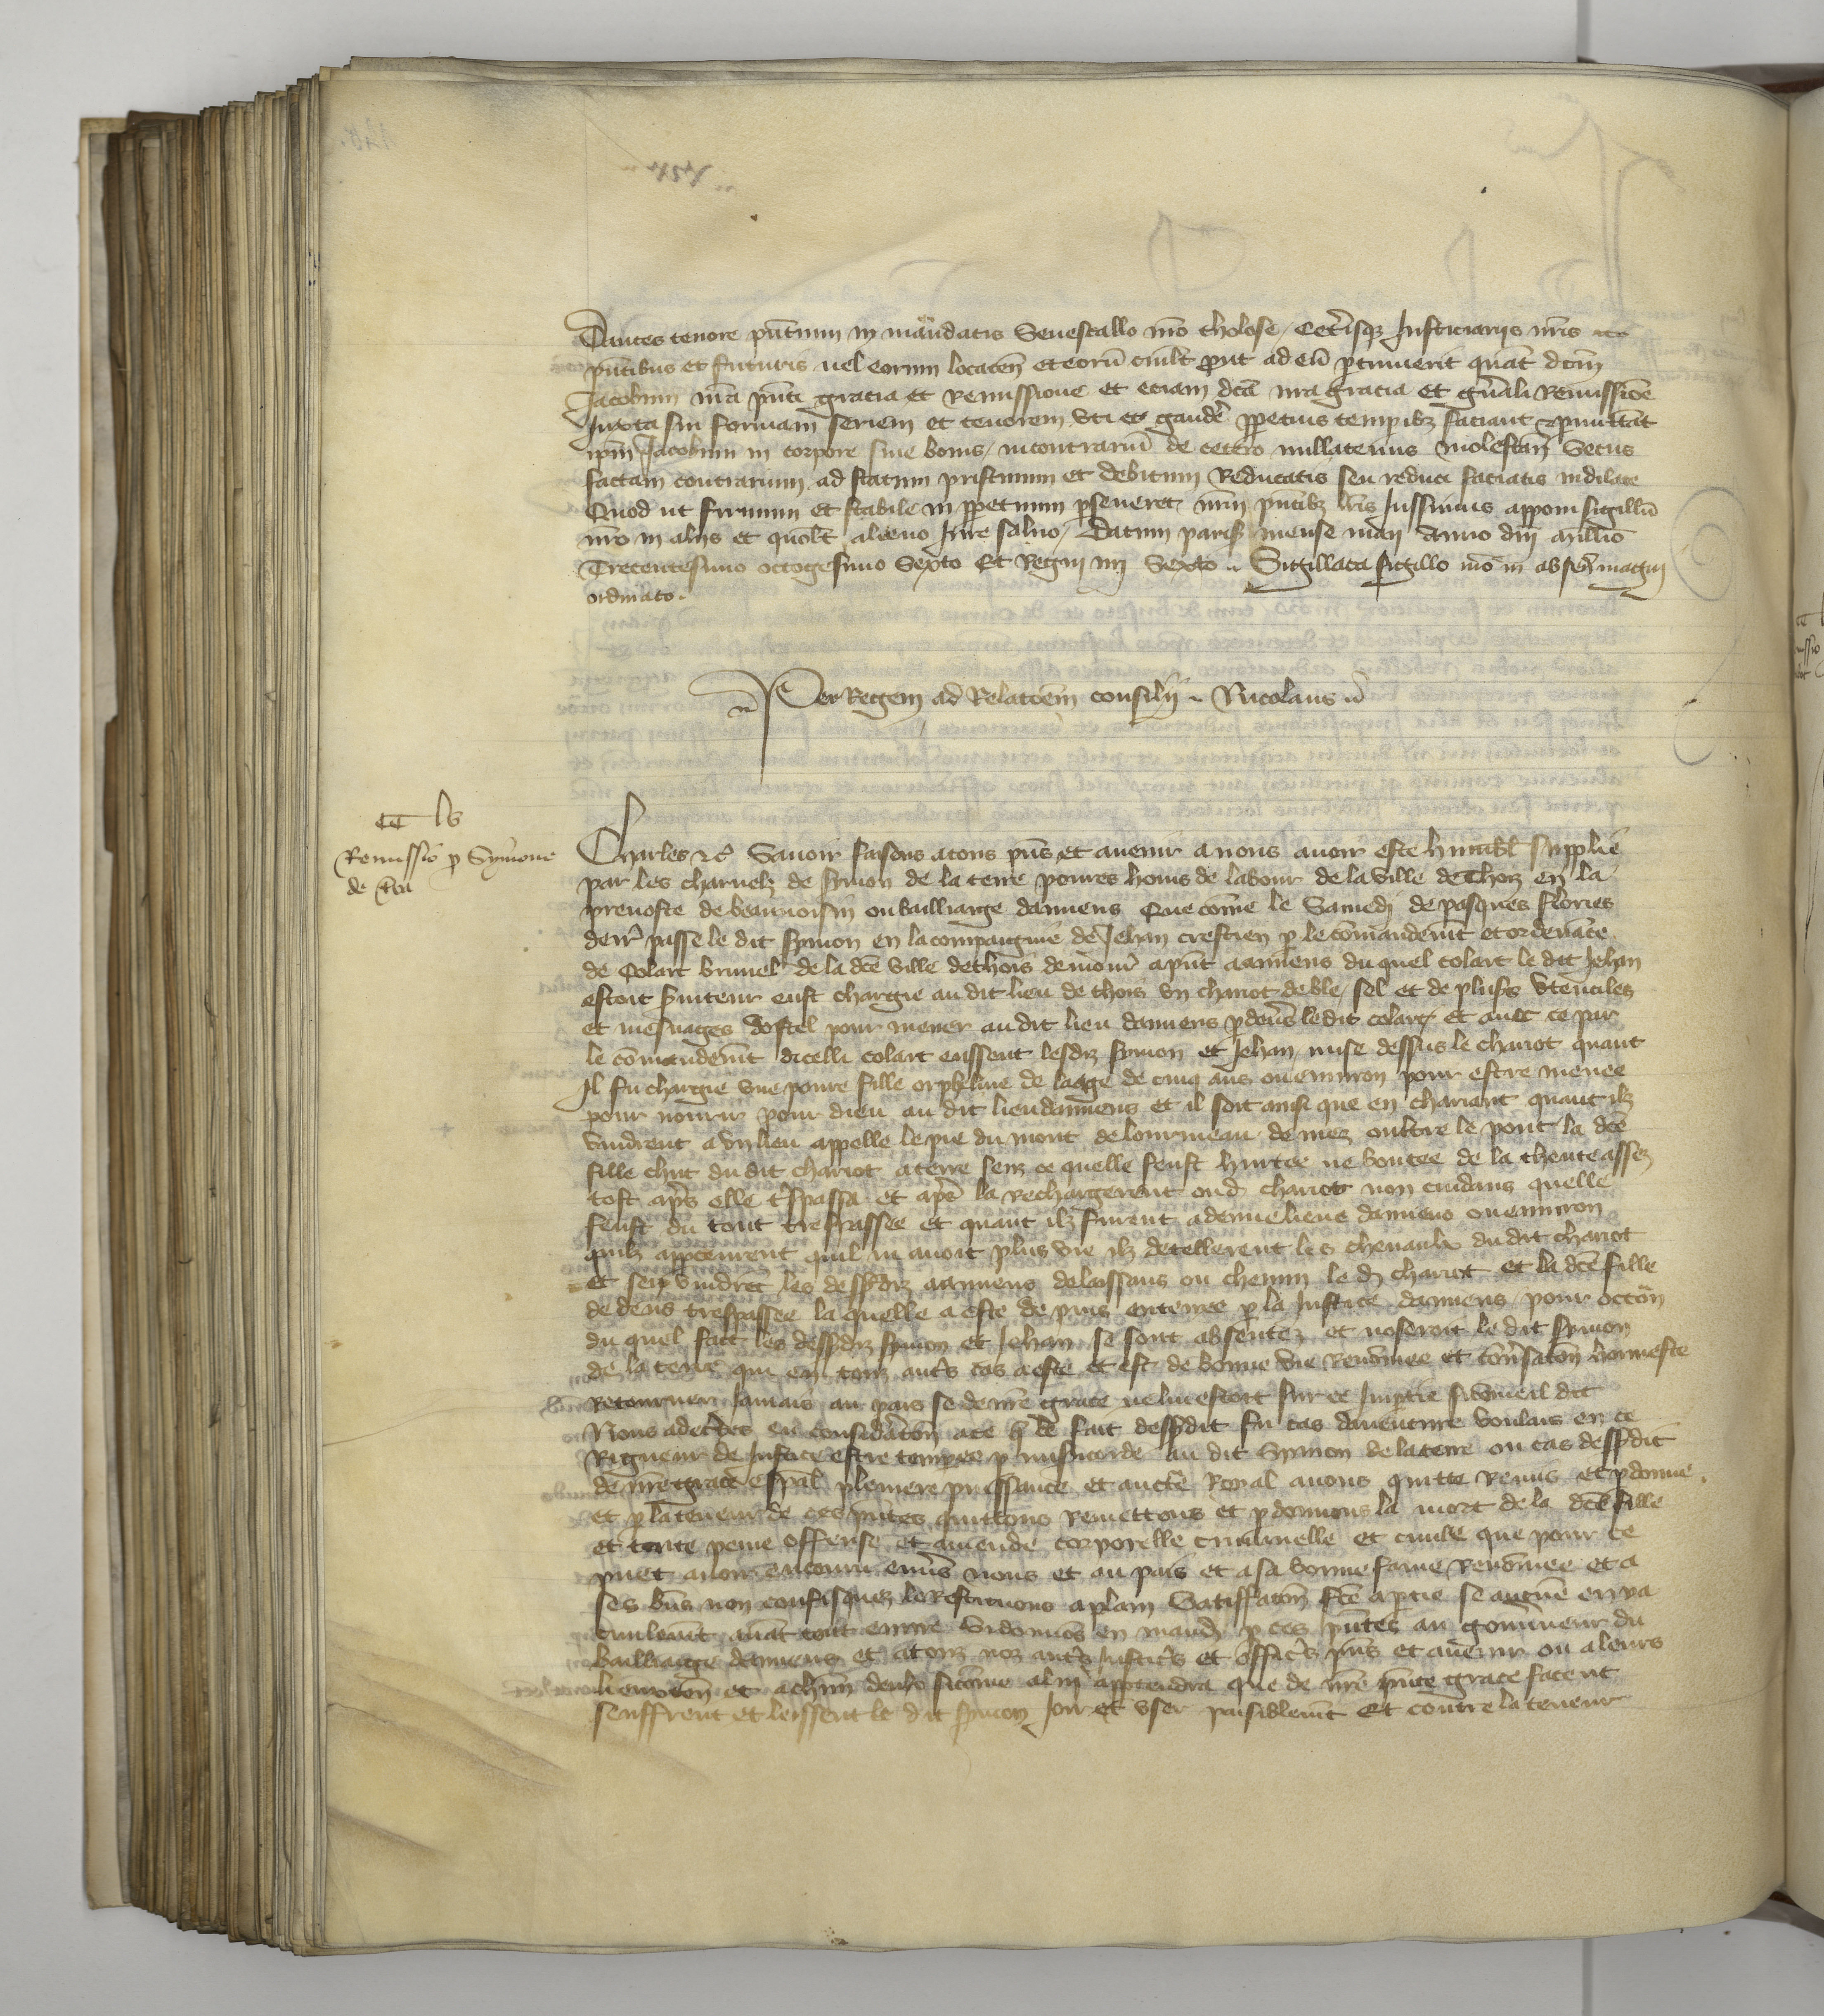 Dantes tenore pñtium in mandatis Senescallo nr̃o tholose / Ceterisq; Justiciariis nr̃is
pñtibus et futuris uel eorum locateñ et eorũ cuilt prout ad eũ ptinuerit quat̃ dcm̃
Jacobum nr̃a pñti gratia et remissione et eciam dcã nr̃a gratia et gñali Remissiõe
Juxta sui formam seriem et tenorem vti et gaudẽ ppetuis tempibz faciant et pmittãt
ipm̃ Jacobum in corpore siue bonis / incontrariũ de cetero nullatenus molestari Secus
factum contrarium ad statum pristinum et debitum Reducatis seu reduci faciatis indilate
Quod ut firmum et stabile in ppetuum pseueret nr̃m pñtibz lr̃is Jussimus apponi sigillũ
nr̃o in aliis et quolt alieno Jure saluo / Datum paris mense maii Anno dñi millio
Trecentesimo octogesimo Sexto Et Regni nr̃i Sexto .. Sigillata sigillo nr̃o in absẽn magni
ordinato .
Per Regem ad Relatoem consilii .. Nicolaus
Remissio p Symone
de t̃ra
Charles &c̃ Sauoir faisons a tous pñs et auenir a nous auoir este humbl̃ supplie
par les charnelz de symon de la terre poures homs de labour de la ville de Thoiz en la
preuoste de beauuoisin ou bailliage damiens Que cõme le Samedi de pasques flories
derr̃ passe le dit symon en la compaignie de Jehan crestien p le cõmandem̃t et ordenãce
de Colart brunel de la dcẽ ville de thois demour̃ a pñt a amiens du quel colart le dit Jehan
estoit s̃uiteur eust chargie au dit lieu de thois vn chariot de ble / sel et de plus̃s vtenciles
et mesnages dostel pour mener au dit lieu damiens p deũs le dit colart / et auec ce par
le cõmandem̃t dicelli colart eussent lesdiz symon et Jehan mise dessus le chariot quant
Il fu chargie vne poure fille orpheline de laage de cinq ans ou enuiron pour estre menee
pour nourir pour dieu au dit lieu damiens et il soit ainsi que en chariant quant ilz
vindrent a vn lieu appelle le pie du mont de lourmeau de mez oultre le pont la dcẽ
fille chut du dit chariot a terre senz ce quelle feust hurtee ne boutee de la cheute assez
tost apr̃s elle t̃spassa et apr̃s la rechargerent oud chariot non cuidans quelle
feust du tout trespassee et quant ilz furent a demie lieue damiens ou enuiron
quilz apperceurent quil ni auoit plus vie ilz detellerent les cheuaulx du dit chariot
et sen vindrẽt les dessdiz a amiens delaissans ou chemin le d chariot et la dcẽ fille
de dens trespassee la quelle a este de puis enterree p la Justice damiens / pour occõn
du quel fait les dessdiz symon et Jehan se sont absentez et noseroit le dit symon
de la terre qui en touz aut̃s cas a este et est de bonne vie renõmee et cõũsatõn honneste
Retourner Jamais au pais se de nr̃e grace ne lui estoit sur ce Impartie si cõme il dit
Nous adecertes en consid̃atõn a ce q̃ le fait dessdit fu cas dauenture voulans en ce
Rigueur de Justice estre tempee p mis̃icorde au dit Symon de la terre ou cas dessdit
de nr̃e grace esp̃al plenere puissance et auct̃e Royal auons quitte remis et pdonne
et p la teneur de ces pñtes quittons remettons et pdonnons la mort de la dcẽ fille
et toute peine offense et amende corporelle criminelle et ciuile que pour ce
puet auoir encouru enũs nous et au pais et a sa bonne fame renõmee et a
ses bñs non confisquez le Restituons a plain Satisfatõn fc̃e a ptie se
ciulem̃t auãt tout euure Si donnõs en mand p ces pñtes au gouũneur du
bailliage damiens et a touz noz aut̃s Justic̃s et offic̃s pñs et auenir ou a leurs
lieuxteñ et a chũn deulx sicõme a lui apptendra que de nr̃e pñte grace facent
seuffrent et leissent le dit symon Joir et vser paisiblem̃t Et contre la teneur